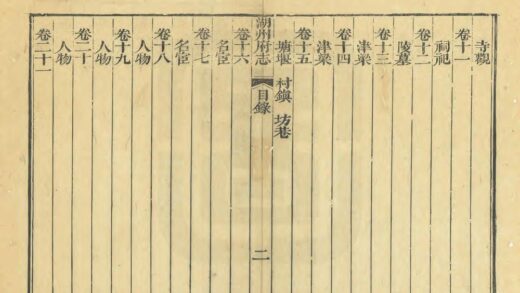 寺觀
卷十一
祠祀
卷十二
陵墓
卷十三
津梁
卷十四
津梁
卷十五
塘堰 村鎮 坊巷
湖州府志 目錄 二
卷十六
名宦
卷十七
名宦
卷十八
人物
卷十九
人物
卷二十
人物
卷二十一